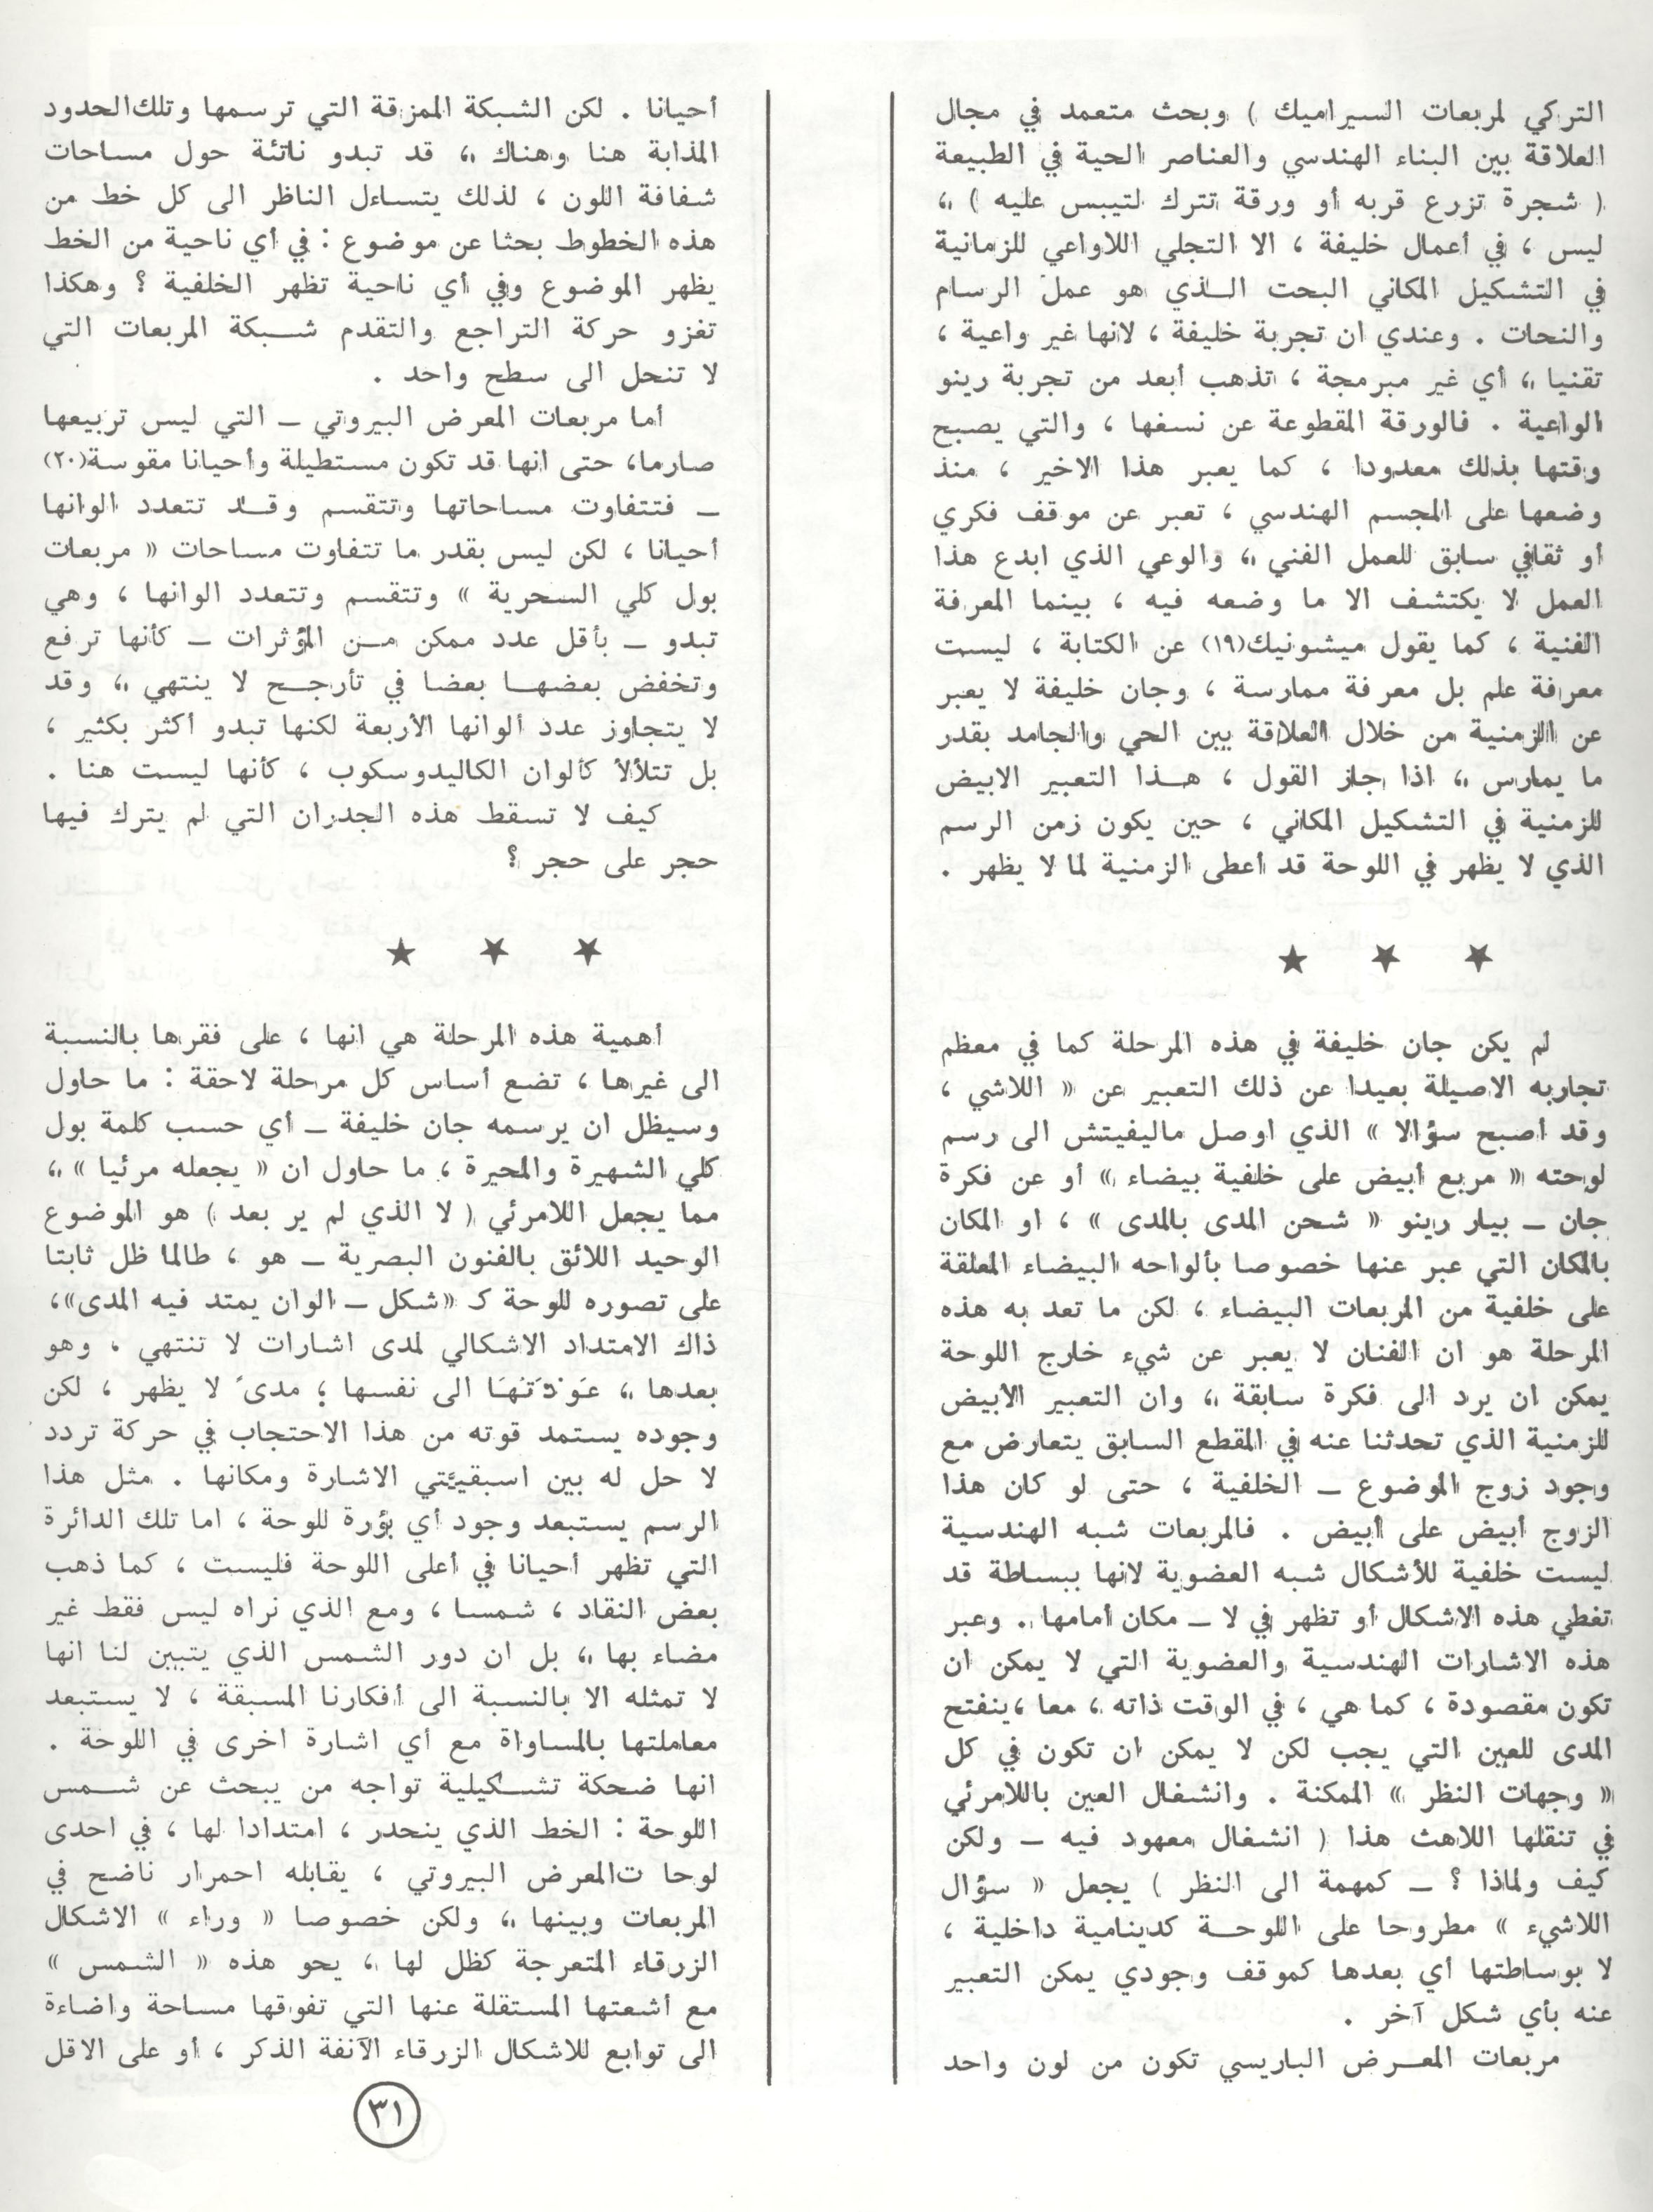 التركي لمربعات السيراميك ) وبحث متعمد في مجال
العلاقة بين البناء الهندسي والعناصر الحية في الطبيعة
( شجرة تزرع قربه أو ورقة تترك لتيبس عليه ) ،
ليس ، في أعمال خليفة ، الا التجلي اللاواعي للزمانية
في التشكيل المكاني البحت الذي هو عمل الرسام
والنحات . وعندي ان تجربة خليفة ، لانها غير واعية ،
تقنيا ، أي غير مبرمجة ، تذهب أبعد من تجربة رينو
الواعية . فالورقة المقطوعة عن نسغها ، والتي يصبح
وقتها بذلك معدودا ، كما يعبر هذا الاخير ، منذ
وضعها على المجسم الهندسي ، تعبر عن موقف فكري
أو ثقافي سابق للعمل الفني ، والوعي الذي ابدع هذا
العمل لا يكتشف الا ما وضعه فيه ، بينما المعرفة
الفنية ، كما يقول ميشونيك(١٩) عن الكتابة ، ليست
معرفة علم بل معرفة ممارسة ، وجان خليفة لا يعبر
عن الزمنية من خلال العلاقة بين الحي والجامد بقدر
ما يمارس ، اذا جاز القول ، هذا التعبير الابيض
للزمنية في التشكيل المكاني ، حين يكون زمن الرسم
الذي لا يظهر في اللوحة قد أعطى الزمنية لما لا يظهر .
★ ★ ★
لم يكن جان خليفة في هذه المرحلة كما في معظم
تجاربه الاصيلة بعيدا عن ذلك التعبير عن « اللاشي ،
وقد أصبح سؤالا » الذي اوصل ماليفيتش الى رسم
لوحته « مربع أبيض على خلفية بيضاء » أو عن فكرة
جان ــ بيار رينو « شحن المدى بالمدى » ، او المكان
بالمكان التي عبر عنها خصوصا بألواحه البيضاء المعلقة
على خلفية من المربعات البيضاء ، لكن ما تعد به هذه
المرحلة هو ان الفنان لا يعبر عن شيء خارج اللوحة
يمكن ان يرد الى فكرة سابقة ، وان التعبير الابيض
للزمنية الذي تحدثنا عنه في المقطع السابق يتعارض مع
وجود زوج الموضوع ــ الخلفية ، حتى لو كان هذا
الزوج أبيض على أبيض . فالمربعات شبه الهندسية
ليست خلفية للأشكال شبه العضوية لانها ببساطة قد
تغطي هذه الاشكال أو تظهر في لا ــ مكان أمامها . وعبر
هذه الاشارات الهندسية والعضوية التي لا يمكن ان
تكون مقصودة ، كما هي ، في الوقت ذاته ، معا ، ينفتح
المدى للعين التي يجب لكن لا يمكن ان تكون في كل
« وجهات النظر » الممكنة . وانشغال العين باللامرئي
في تنقلها اللاهث هذا ( انشغال معهود فيه ــ ولكن
كيف ولماذا ؟ ــ كمهمة الى النظر ) يجعل « سؤال
اللاشيء » مطروحا على اللوحة كدينامية داخلية ،
لا بوساطتها أي بعدها كموقف وجودي يمكن التعبير
عنه بأي شكل آخر .
مربعات المعرض الباريسي تكون من لون واحد
أحيانا . لكن الشبكة الممزقة التي ترسمها وتلك الحدود
المذابة هنا وهناك ، قد تبدو ناتئة حول مساحات
شفافة اللون ، لذلك يتساءل الناظر الى كل خط من
هذه الخطوط بحثا عن موضوع : في أي ناحية من الخط
يظهر الموضوع وفي أي ناحية تظهر الخلفية ؟ وهكذا
تغزو حركة التراجع والتقدم شبكة المربعات التي
لا تنحل الى سطح واحد .
أما مربعات المعرض البيروتي ــ التي ليس تربيعها
صارما، حتى انها قد تكون مستطيلة وأحيانا مقوسة(٢٠)
ــ فتتفاوت مساحاتها وتتقسم وقد تتعدد الوانها
أحيانا ، لكن ليس بقدر ما تتفاوت مساحات « مربعات
بول كلي السحرية » وتتقسم وتتعدد الوانها ، وهي
تبدو ــ بأقل عدد ممكن من المؤثرات ــ كأنها ترفع
وتخفض بعضها بعضا في تأرجح لا ينتهي ، وقد
لا يتجاوز عدد ألوانها الأربعة لكنها تبدو أكثر بكثير ،
بل تتلألأ كألوان الكاليدوسكوب ، كأنها ليست هنا .
كيف لا تسقط هذه الجدران التي لم يترك فيها
حجر على حجر ؟
★ ★ ★
أهمية هذه المرحلة هي انها ، على فقرها بالنسبة
الى غيرها ، تضع أساس كل مرحلة لاحقة : ما حاول
وسيظل ان يرسمه جان خليفة ــ أي حسب كلمة بول
كلي الشهيرة والمحيرة ، ما حاول ان « يجعله مرئيا » ،
مما يجعل اللامرئي ( لا الذي لم ير بعد ) هو الموضوع
الوحيد اللائق بالفنون البصرية ــ هو ، طالما ظل ثابتا
على تصوره للوحة كـ «شكل ــ الوان يمتد فيه المدى»،
ذاك الامتداد الاشكالي لمدى اشارات لا تنتهي ، وهو
بعدها ، عَوْدَتَهَا الى نفسها ؛ مدىً لا يظهر ، لكن
وجوده يستمد قوته من هذا الاحتجاب في حركة تردد
لا حل له بين اسبقيتي الاشارة ومكانها . مثل هذا
الرسم يستبعد وجود أي بؤرة للوحة ، اما تلك الدائرة
التي تظهر أحيانا في أعلى اللوحة فليست ، كما ذهب
بعض النقاد ، شمسا ، ومع الذي نراه ليس فقط غير
مضاء بها ، بل ان دور الشمس الذي يتبين لنا انها
لا تمثله الا بالنسبة الى أفكارنا المسبقة ، لا يستبعد
معاملتها بالمساواة مع أي اشارة اخرى في اللوحة .
انها ضحكة تشكيلية تواجه من يبحث عن شمس
اللوحة : الخط الذي ينحدر ، امتدادا لها ، في احدى
لوحا ت المعرض البيروتي ، يقابله احمرار ناضح في
المربعات وبينها ، ولكن خصوصا « وراء » الاشكال
الزرقاء المتعرجة كظل لها ، يحو هذه « الشمس »
مع أشعتها المستقلة عنها التي تفوقها مساحة واضاءة
الى توابع للاشكال الزرقاء الآنفة الذكر ، أو على الاقل
٣١